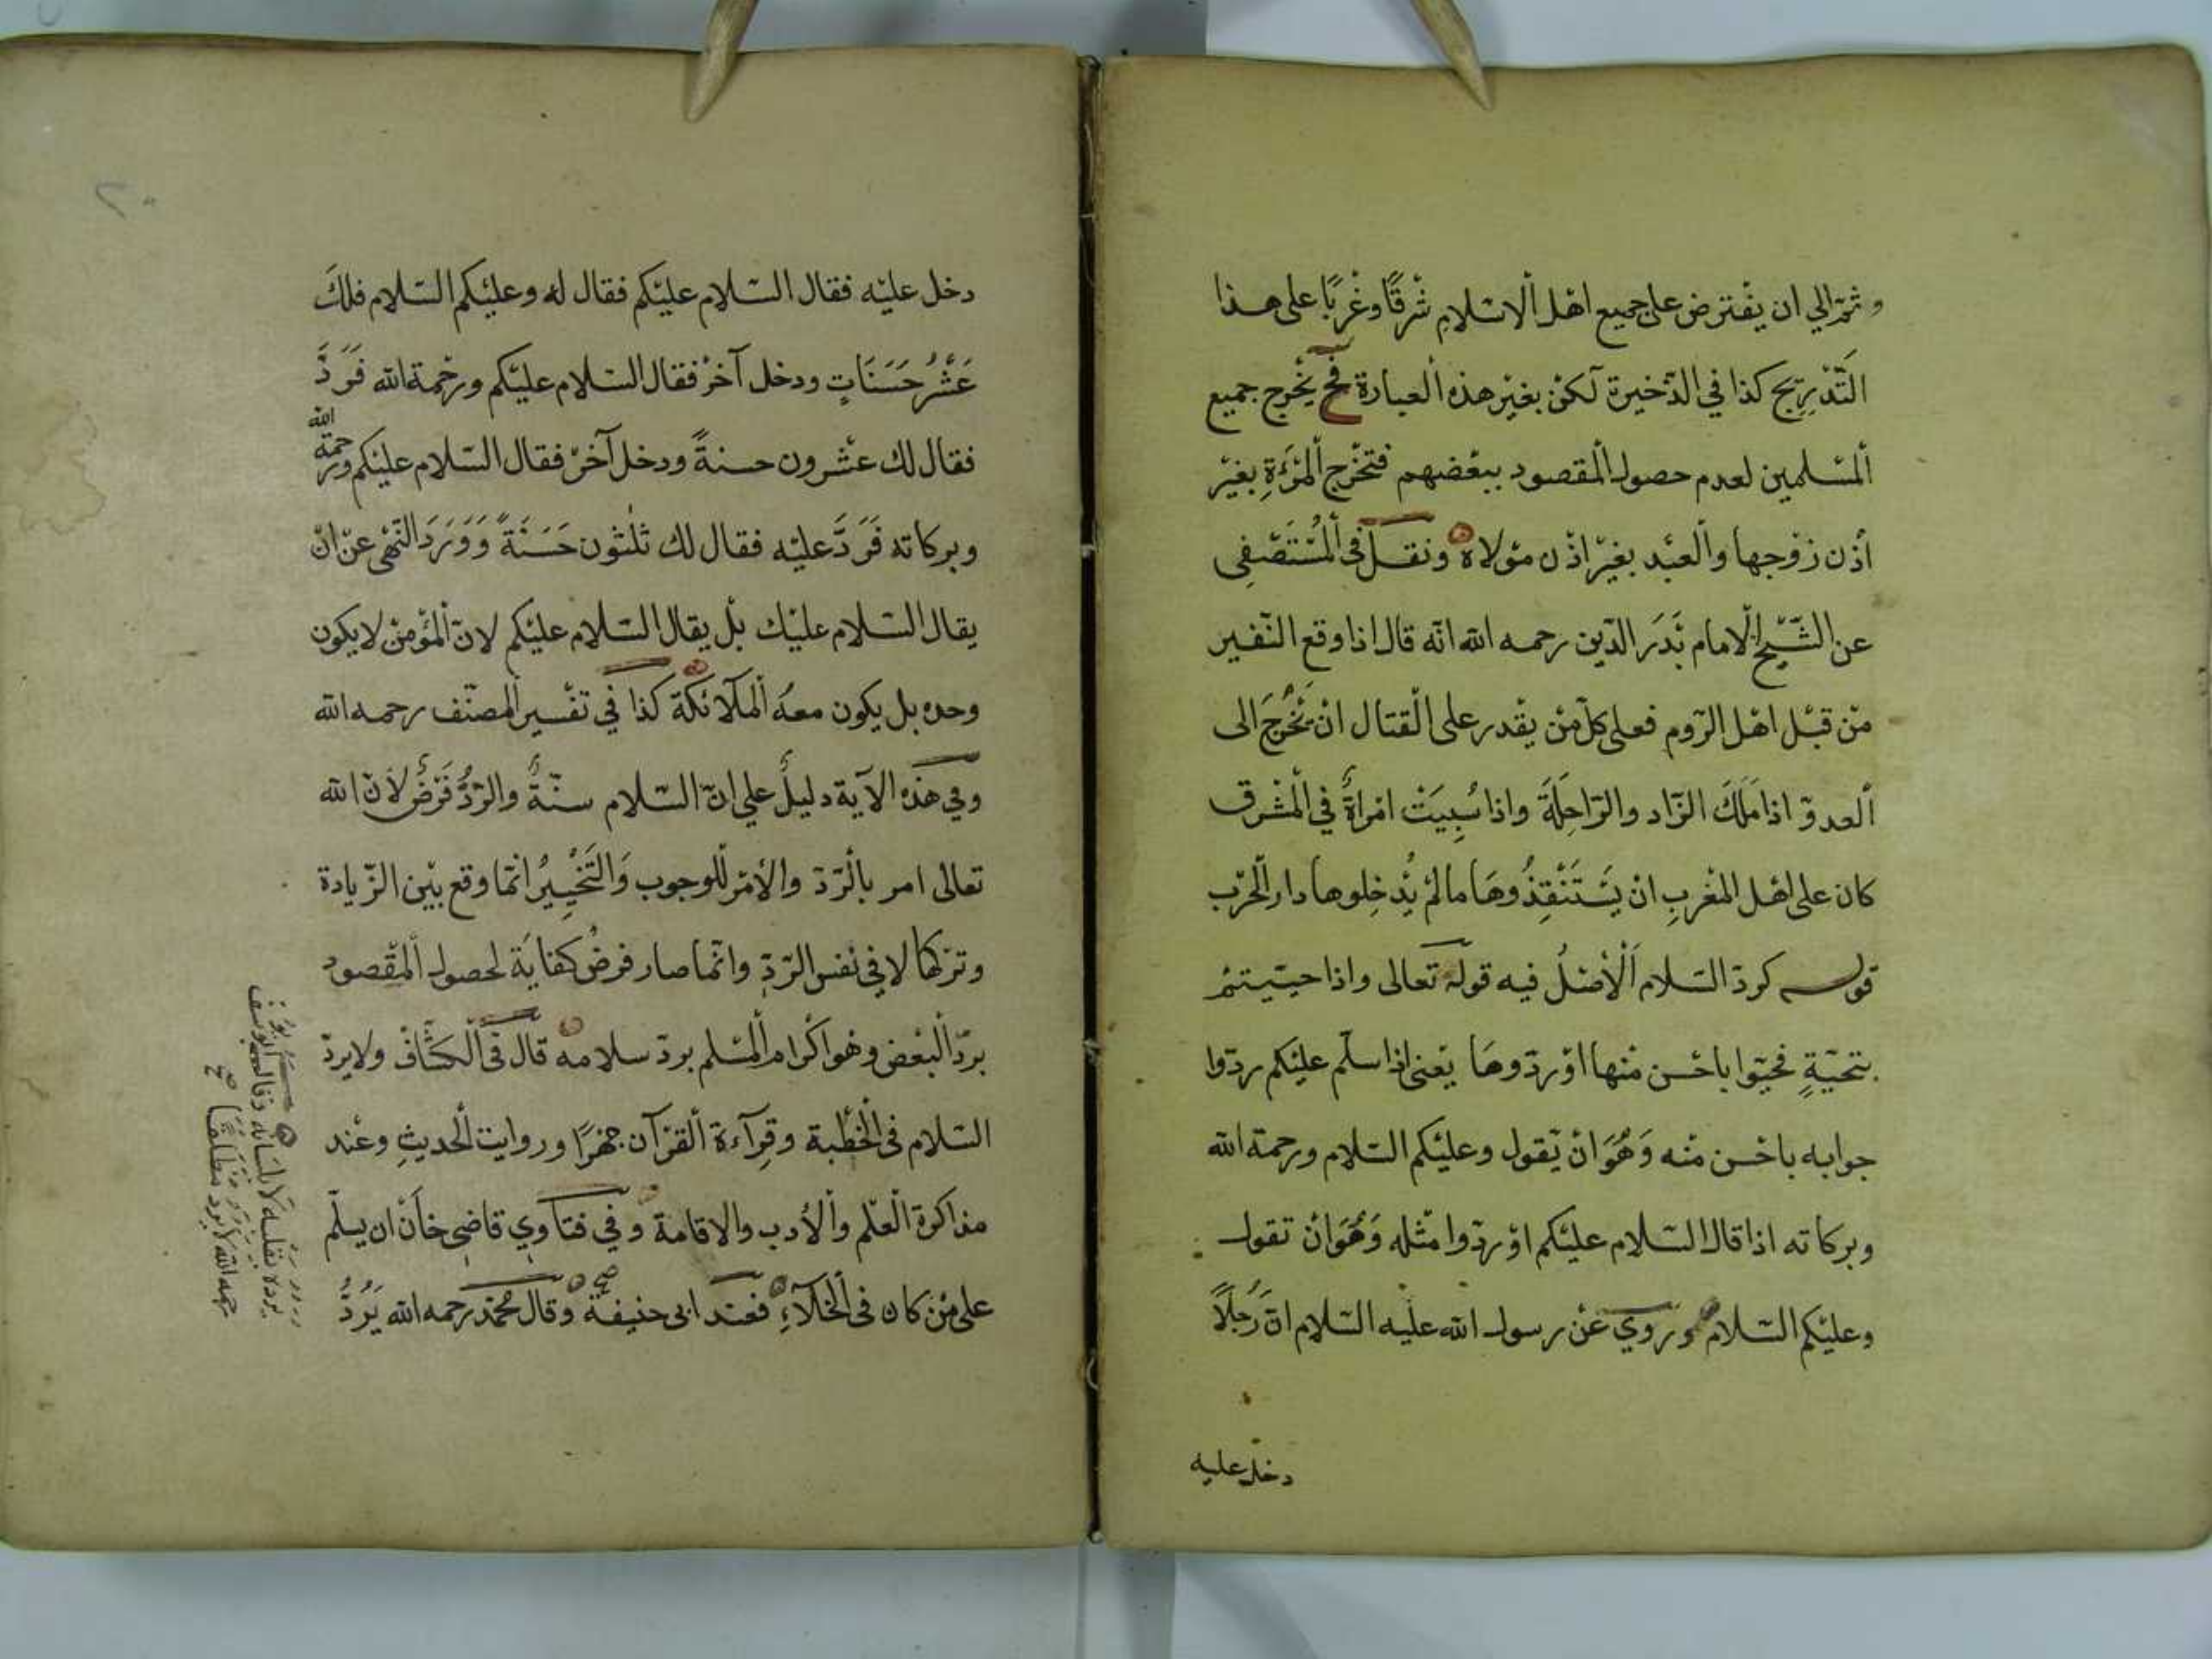 وثمّ الي ان يفْترض على جميع اهْل الْاسْلامِ شرْقًا وغرْبًا على هذا
التَّدْرِيج كذا في الذّخيرة لكنْ بغيْر هذه الْعبارة فح يخْرج جميع
الْمسْلمين لعدم حصول الْمقصود ببعْضهم فتخْرج الْمرْءَةِ بغيْر
أذْن زوْجها والْعبْد بغيْر اذْن موْلاه ونقل في الْمُسْتَصْفي
عن الشّيْخ الامام بَدَر الدّين رحمه الله انّه قال اذا وقع النّفير
منْ قبْل اهْل الرّوم فعلى كلّ منْ يقْدر على الْقتال انْ يَخْرُجَ الى
الْعدوّ اذا مَلَكَ الزّاد والرّاحِلَةَ واذا سُبِيَتْ امْراةٌ في الْمشْرق
كان على اهْل الْمغْربِ انْ يَسْتَنْقِذُوهَا مالمْ يُدْخِلوها دار الْحرْب
قوله كردّ السّلام اَلْأصْلُ فيه قوله تعالى واذا حيّيتمْ
بتحيّةٍ فحيّوا باحْسن منْها اوْ ردّوهَا يعْني اذا سلّم عليْكم ردّوا
جوابه باحْسن منْه وَهُوَ انْ يَقول وعليْكم السّلام ورحمة الله
وبركاته اذا قال السّلام عليْكم اوْ ردّوا مثْله وَهُوَ انْ تقول
وعليْكم السّلام وروي عنْ رسول الله عليْه السّلام انّ رَجُلاً
دخل عليه
٢٠
دخل عليْه فقال السّلام عليْكم فقال له وعليْكم السّلام فلكَ
عَشْرُ حَسَنَاتٍ ودخل آخرُ فقال السّلام عليْكم ورحْمة الله فَرَدَّ
فقال لك عشْرون حسنةً ودخل آخرْ فقال السّلام عليْكم ورحمة الله
وبركاته فَرَدَّ عليْه فقال لك ثلٰثون حَسَنَةً وَوَرَدَ النّهْى عنْ انْ
يقال السّلام عليْك بلْ يقال السّلام عليْكم لانّ الْمؤْمنْ لا يكون
وحده بل يكون معهُ الْملآئكَة كذا في تفْسير الْمصنّف رحمه الله
وفي هذه الآية دليلٌ علي انّ السّلام سنّةٌ والرّدُّ فَرْضٌ لأنّ الله
تعالى امر بالْرّدّ والأمْر للْوجوب وَالتَّخْيِيرُ انّما وقع بيْن الزّيادة
وترْكها لا في نفْس الرّدّ وانّما صار فرضُ كفايَة لحصول الْمقْصود
بردّ الْبعْض وهو اكْرام الْمسْلم بردّ سلامه قال فى الْكشّاف ولا يردّ
السّلام فى الْخطْبة وقِرآءة الْقرْآن جهْرًا وروايت الْحديثِ وعنْد
مذاكرة الْعلْم والْأدب والاقامة وفي فتاوي قاضي خانْ ان يسلّم
على منْ كان فى الْخلآءِ فعند ابى حنيفة وقال محمّد رحمه الله يَرُدُّ
يرده بقلبه لا بلسانه وقال ابو يوسف
رحمه الله لا يرد مطلقا صح